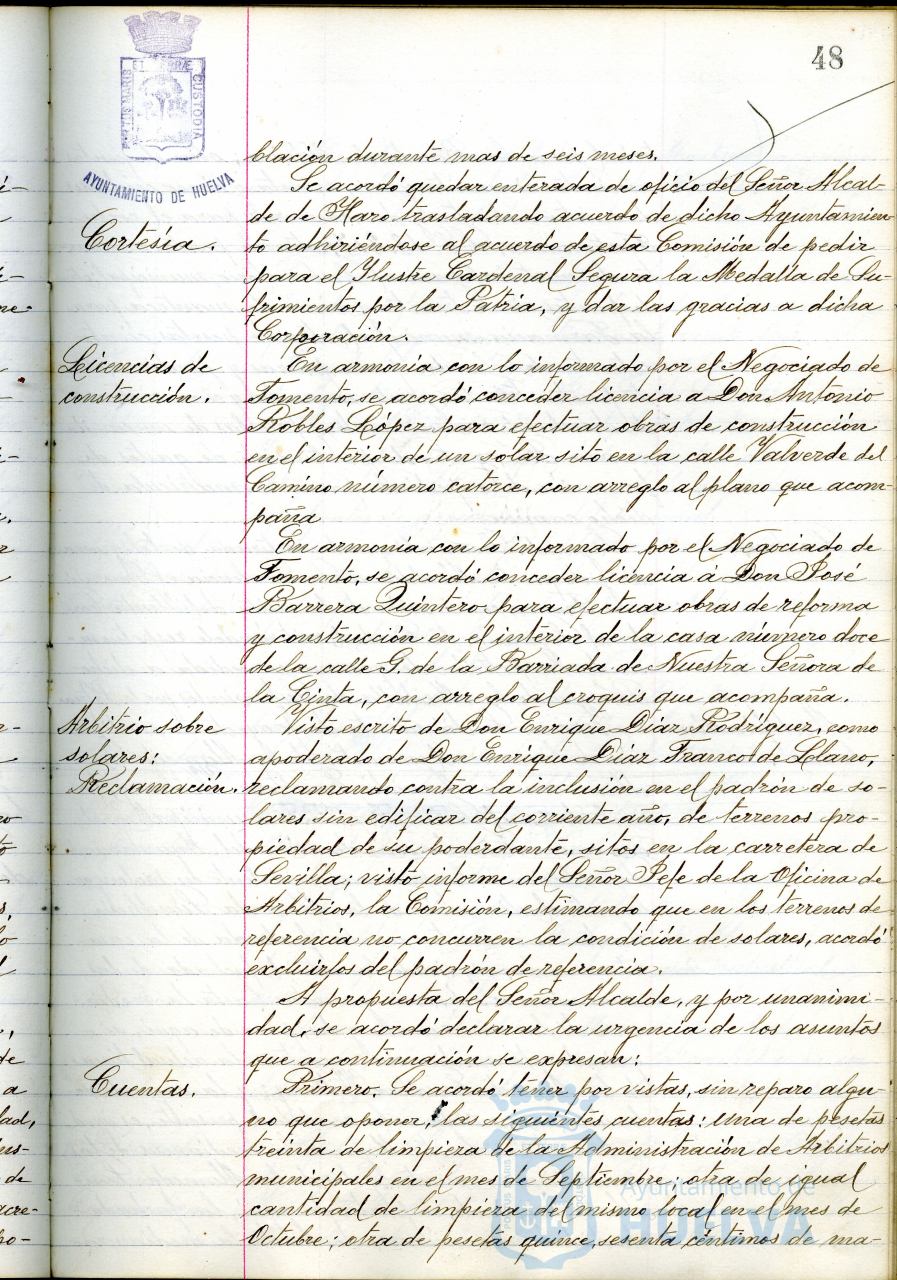 48
PORTUS MARIS ET TERRÆ CUSTODIA
AYUNTAMIENTO DE HUELVA
blación durante mas de seis meses.
Se acordó quedar enterada de oficio del Señor Alcal-
de de Haro, trasladando acuerdo de dicho Ayuntamien-
Cortesía.
to adhiriéndose al acuerdo de esta Comisión de pedir
para el Ilustre Cardenal Segura la Medalla de Su-
frimientos por la Patria, y dar las gracias a dicha
Corporación.
Licencias de
construcción.
En armonía con lo informado por el Negociado de
Fomento, se acordó conceder licencia a Don Antonio
Robles López para efectuar obras de construcción
en el interior de un solar sito en la calle Valverde del
Camino número catorce, con arreglo al plano que acom-
paña
En armonía con lo informado por el Negociado de
Fomento, se acordó conceder licencia á Don José
Barrera Quintero para efectuar obras de reforma
y construcción en el interior de la casa número doce
de la calle G. de la Barriada de Nuestra Señora de
la Cinta, con arreglo al croquis que acompaña.
Arbitrio sobre
solares:
Reclamación.
Visto escrito de Don Enrique Díaz Rodríguez, como
apoderado de Don Enrique Díaz Franco de Llano,
reclamando contra la inclusión en el padrón de so-
lares sin edificar del corriente año, de terrenos pro-
piedad de su poderdante, sitos en la carretera de
Sevilla; visto informe del Señor Jefe de la Oficina de
Arbitrios, la Comisión, estimando que en los terrenos de
referencia no concurren la condición de solares, acordó
excluirlos del padrón de referencia.
A propuesta del Señor Alcalde, y por unanimi-
dad, se acordó declarar la urgencia de los asuntos
que a continuación se expresan:
Cuentas.
Primero. Se acordó tener por vistas, sin reparo algu-
no que oponer, las siguientes cuentas: una de pesetas
treinta de limpieza de la Administración de Arbitrios
municipales en el mes de Septiembre; otra de igual
cantidad de limpieza del mismo local en el mes de
Octubre; otra de pesetas quince, sesenta céntimos de ma-
Ayuntamiento de
HUELVA